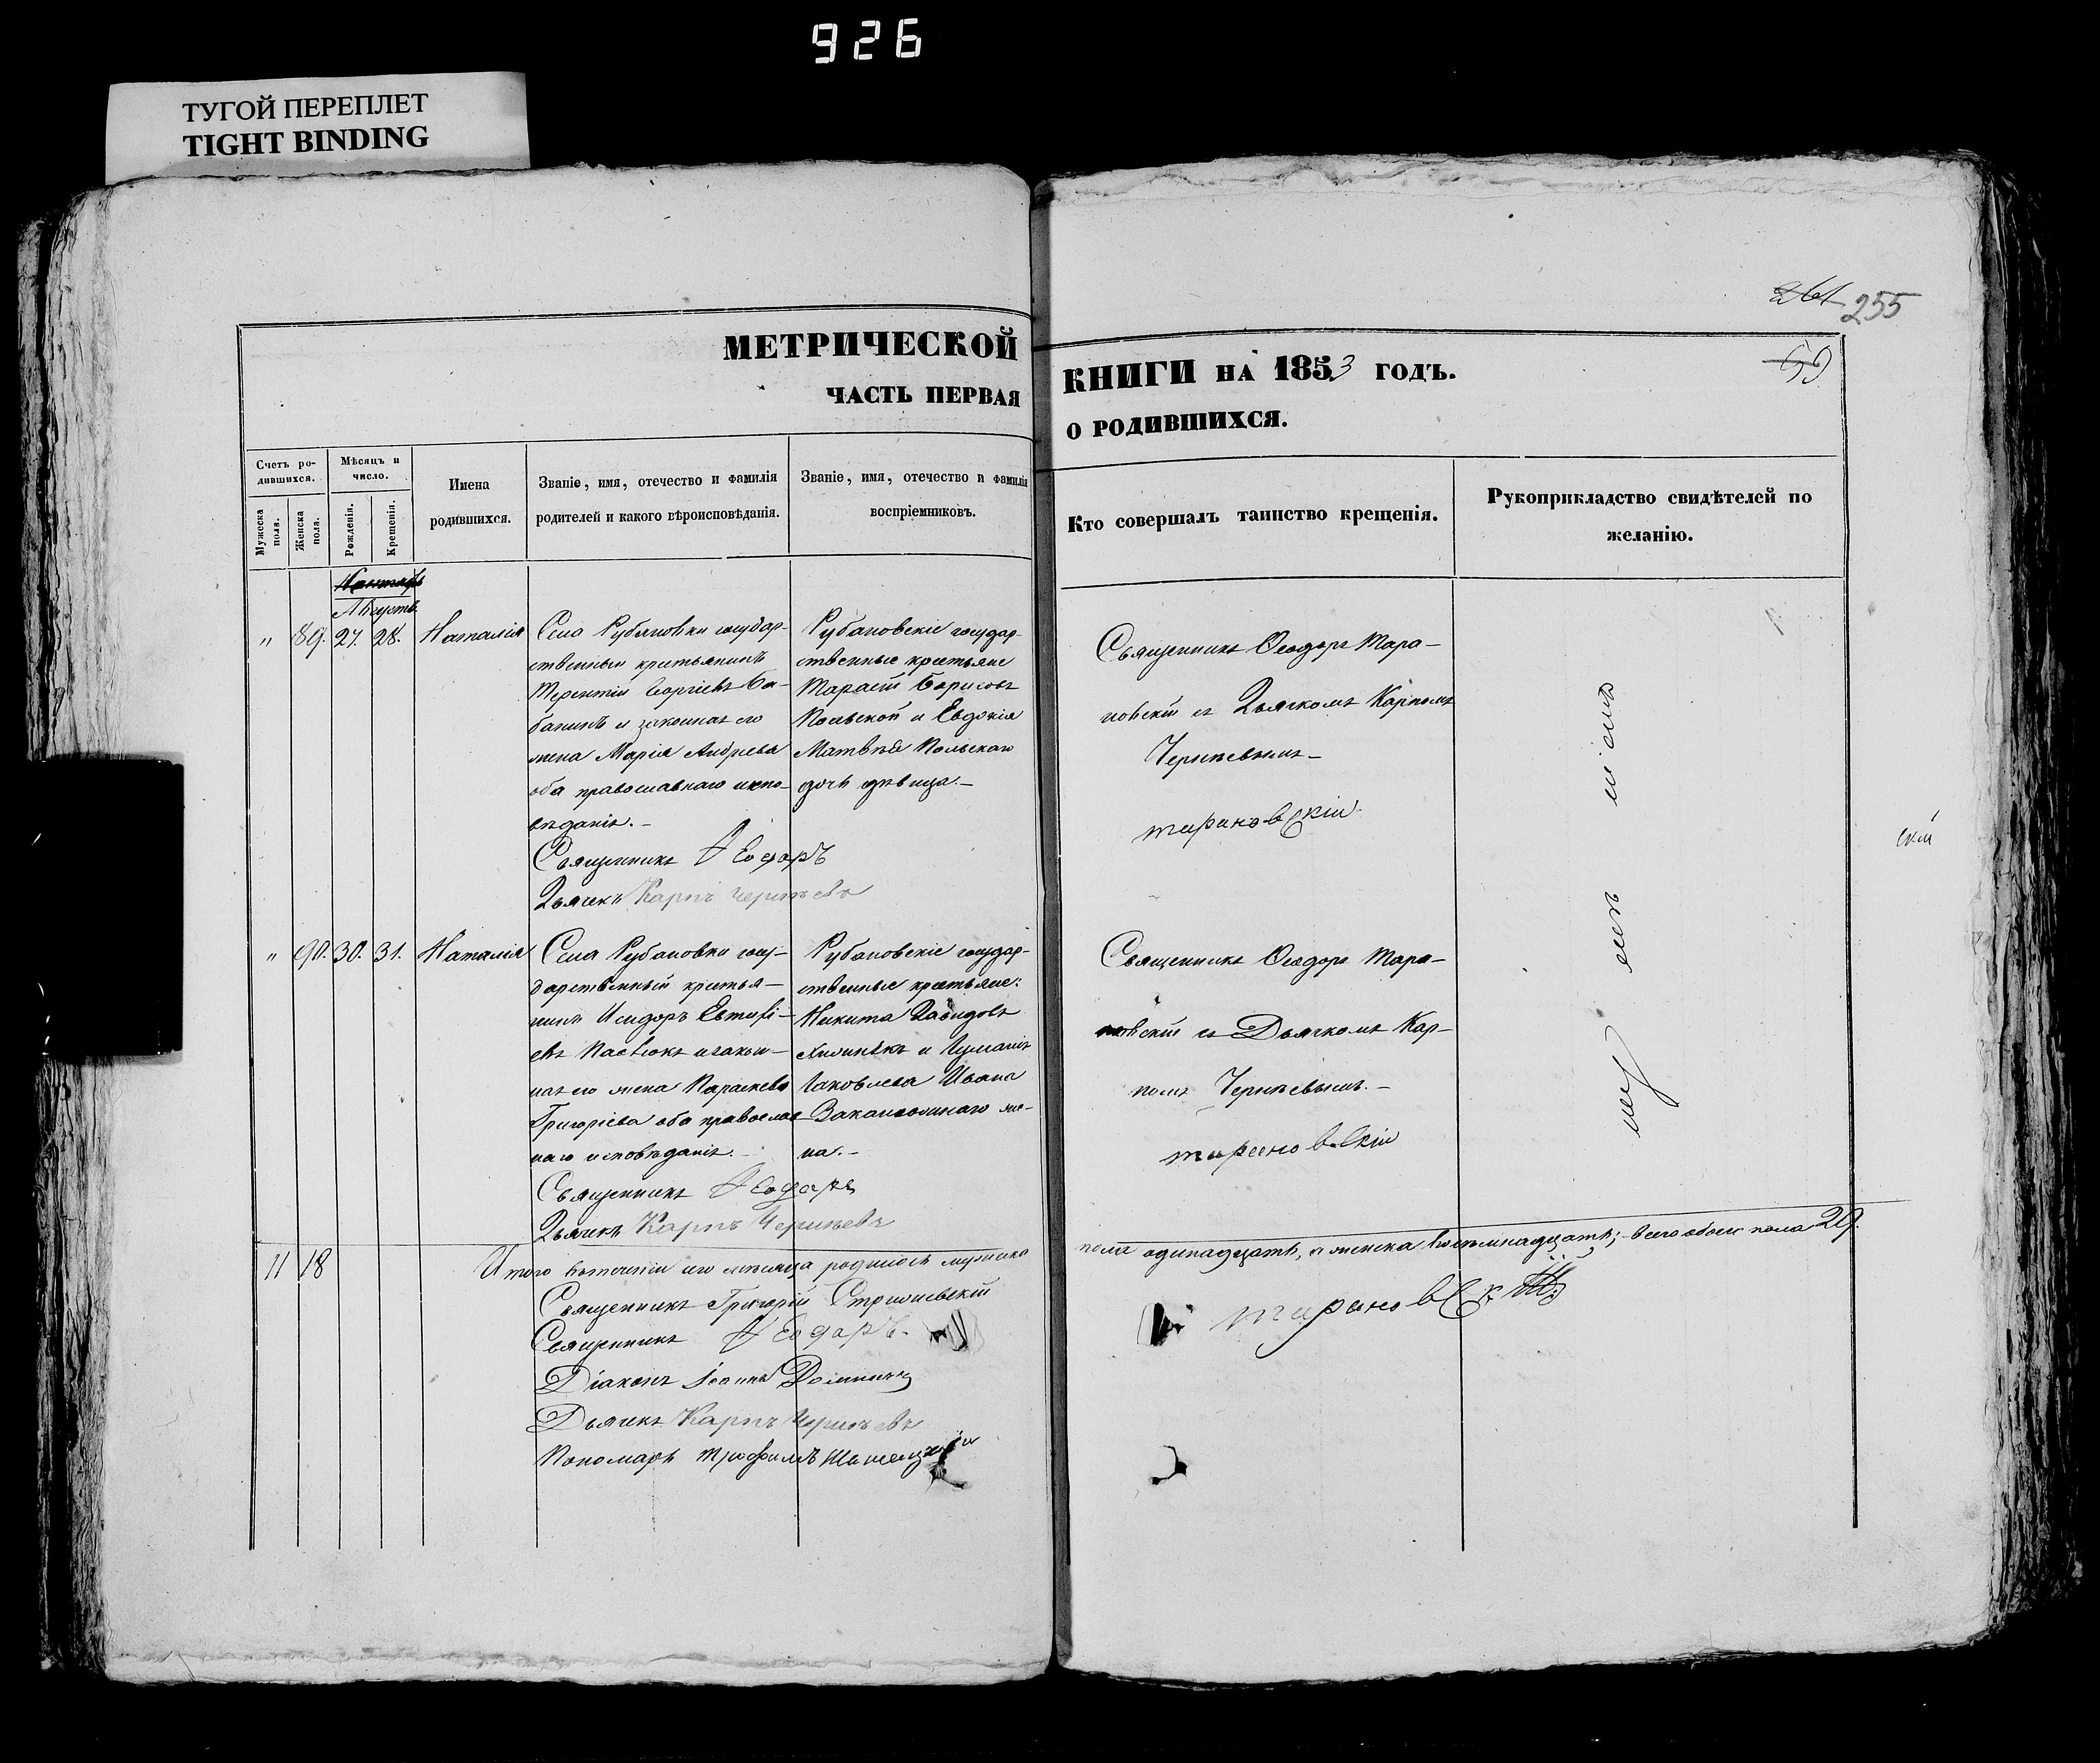 926
ТУГОЙ ПЕРЕПЛЕТ
TIGHT BINDING
261 255
59
МЕТРИЧЕСКОЙ
ЧАСТЬ ПЕРВАЯ
КНИГИ НА 1853 ГОДЪ.
О РОДИВШИХСЯ.
Счетъ ро-
дившихся.
Мужеска пола.
Женска пола.
Мѣсяцъ и
число.
Рожденія.
Крещенія.
Имена
родившихся.
Званіе, имя, отечество и фамилія
родителей и какого вѣроисповѣданія.
Званіе, имя, отечество и фамилія
воспріемниковъ.
Кто совершалъ таинство крещенія.
Рукоприкладство свидѣтелей по
желанію.
Августъ
" 89. 27. 28. Наталія
Села Рубановки государ-
ственный крестьянинъ
Терентій Сергіевъ Ба-
банинъ и законная его
жена Марія Андреева
оба православнаго испо-
вѣданія.-
Священникъ Ѳеодоръ
Дьячекъ Карпъ Чернѣевъ
Рубановскіе государ-
ственные крестьяне
Тарасій Борисовъ
Польской и Евдокія
Матвѣя Польскаго
дочь дѣвица.-
Священникъ Ѳеодоръ Тара-
новскій съ Дьячкомъ Карпомъ
Чернѣевымъ-
Тарановскій
" 90. 30. 31. Наталія
Села Рубановки госу-
дарственный крестья-
нинъ Исидоръ Евтихі-
евъ Павлюкъ и закон-
ная его жена Параскева
Григоріева оба православ-
наго исповѣданія.-
Священникъ Ѳеодоръ
Дьячекъ Карпъ Чернѣевъ
Рубановскіе государ-
ственные крестьяне:
Никита Давидовъ
и
Яковлева Ивана
же-
на.-
Священникъ Ѳеодоръ Тара-
новскій съ Дьячкомъ Кар-
помъ Чернѣевымъ.-
Тарановскій
скій
11 18 Итого въ теченіи сего мѣсяца родилось мужеска
пола одинадцать, а женска восемнадцать; - всего обоего пола 29.
Священникъ Григорій
Священникъ Ѳеодоръ.
Тарановскій
Діаконъ Іоаннъ
Дьячекъ Карпъ Чернѣевъ
Пономарь Трофимъ